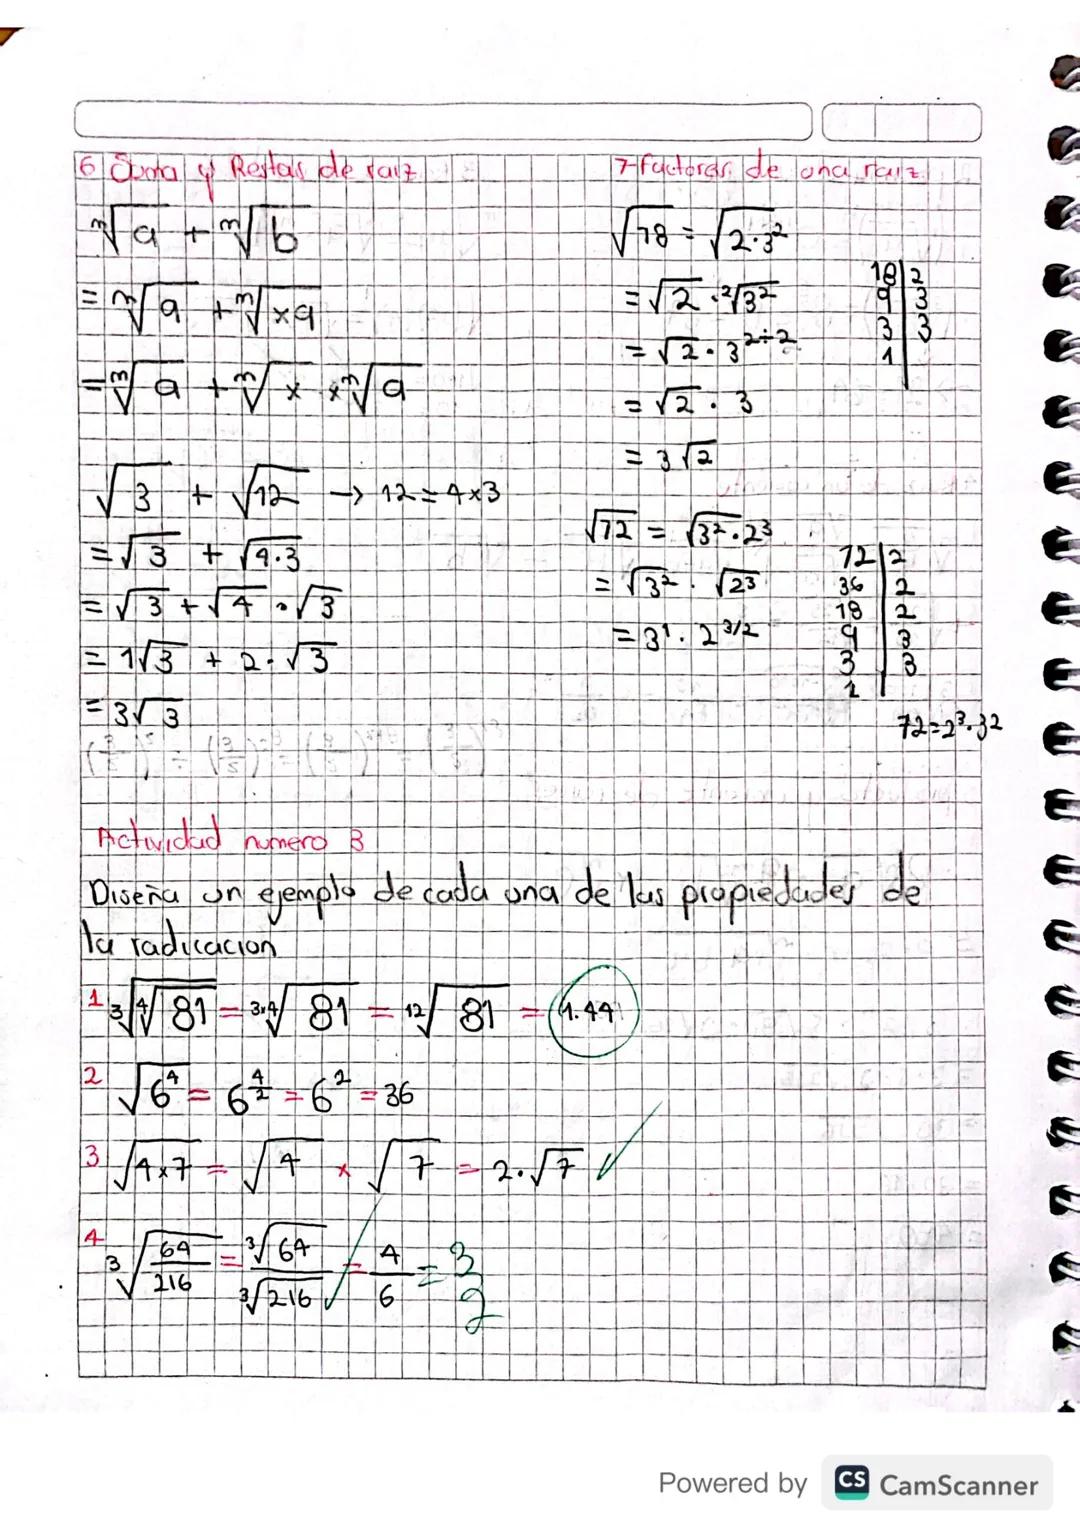 6 Suma y Restas de raiz
ᵐ√a + ᵐ√b
= ᵐ√a + ᵐ√xa
= ᵐ√a + ᵐ√x × ᵐ√a
√3 + √12 → 12 = 4×3
= √3 + √4·3
= √3 + √4 · √3
= 1√3 + 2·√3
= 3√3
7-factores de una raiz
√18 = √2·3²
= √2 · ²√3²
= √2 · 3^2÷2
= √2 · 3
= 3√2
18|2
9|3
3|3
1|
√72 = √3²·2³
= √3² · √2³
= 3¹ · 2^3/2
72|2
36|2
18|2
9|3
3|3
1|
72=2³·32
Actividad numero 3
Diseña un ejemplo de cada una de las propiedades de
la radicacion
1 ³√⁴√81 = ³ˣ⁴√81 = ¹²√81 = 1.44
2 √6⁴ = 6^4/2 = 6² = 36
3 √4×7 = √4 × √7 = 2·√7 ✓
4 ³√64/216 = ³√64/³√216 = 4/6 = 3/2
Powered by CS CamScanner